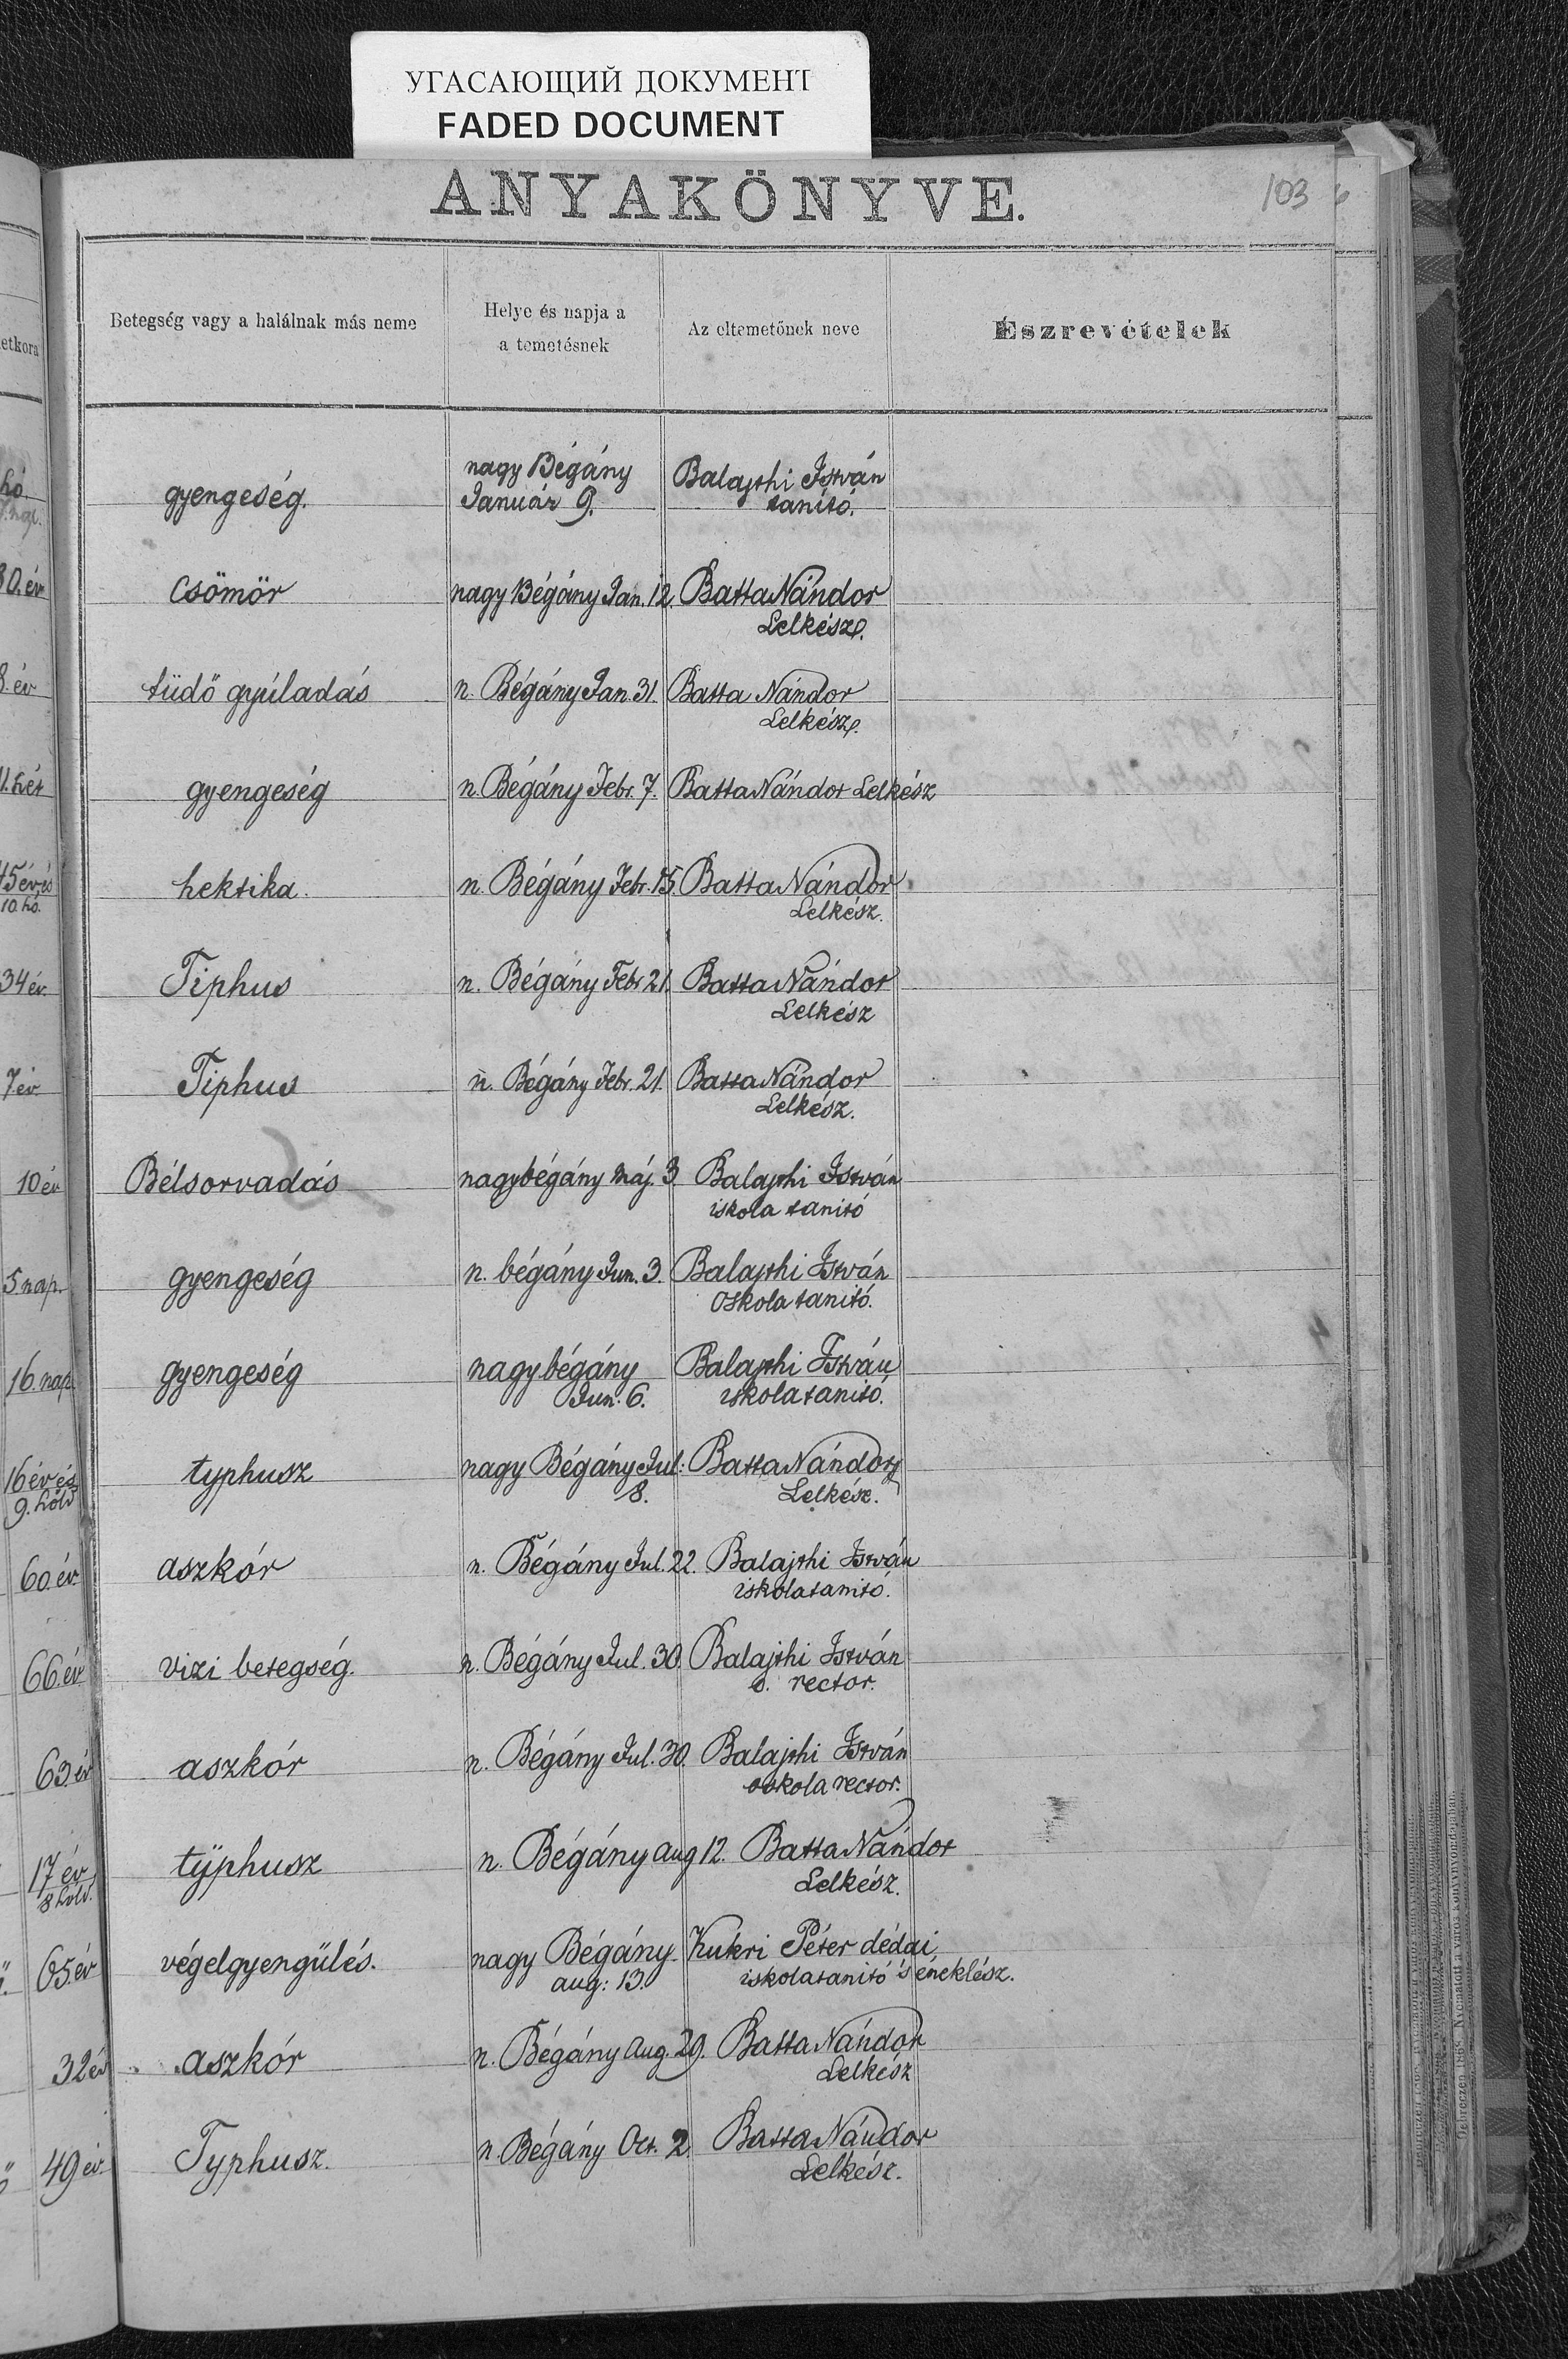 УГАСАЮЩИЙ ДОКУМЕНТ
FADED DOCUMENT
ANYAKÖNYVE.
103
etkora
Betegség vagy a halálnak más neme
Helye és napja a
a temetésnek
Az eltemetőnek neve
Észrevételek
hó
gyengeség.
nagy Bégány
Január 9.
Balajthi István
tanító.
30. év
csömör
nagy Bégány Jan. 12.
Batta Nándor
Lelkész.
8. év
tüdő gyúladás
n. Bégány Jan. 31.
Batta Nándor
Lelkész.
11. hét
gyengeség
n. Bégány Febr. 7.
Batta Nándor Lelkész
45 év és
10. hó.
hektika.
n. Bégány Febr. 15.
Batta Nándor
Lelkész.
34 év.
Tiphus
n. Bégány Febr 21.
Batta Nándor
Lelkész
7 év
Tiphus
n. Bégány Febr. 21.
Batta Nándor
Lelkész.
10 év
Bélsorvadás
nagybégány Máj. 3
Balajthi István
iskola tanitó
5. nap.
gyengeség
n. bégány Jun. 3.
Balajthi István
oskola tanitó.
16. nap.
gyengeség
nagybégány
Jun. 6.
Balajthi István
iskolatanitó.
16 év és
9. hóld
typhusz
nagy Bégány Jul:
8.
Batta Nándor
Lelkész.
60. év
aszkór
n. Bégány Jul. 22.
Balajthi István
iskolatanitó.
66. év
vizi betegség.
n. Bégány Jul. 30.
Balajthi István
o. rector.
63. év
aszkór
n. Bégány Jul. 30.
Balajthi István
oskola rector.
17 év
8 hold.
typhusz
n. Bégány aug 12.
Batta Nándor
Lelkész.
65. év
végelgyengülés.
nagy Bégány
aug: 13.
Kukri Péter dédai
iskolatanitó 's éneklész.
32 év
aszkór
n. Bégány Aug. 29.
Batta Nándor
Lelkész
49 év.
Typhusz.
n. Bégány Oct. 2.
Batta Nándor
Lelkész.